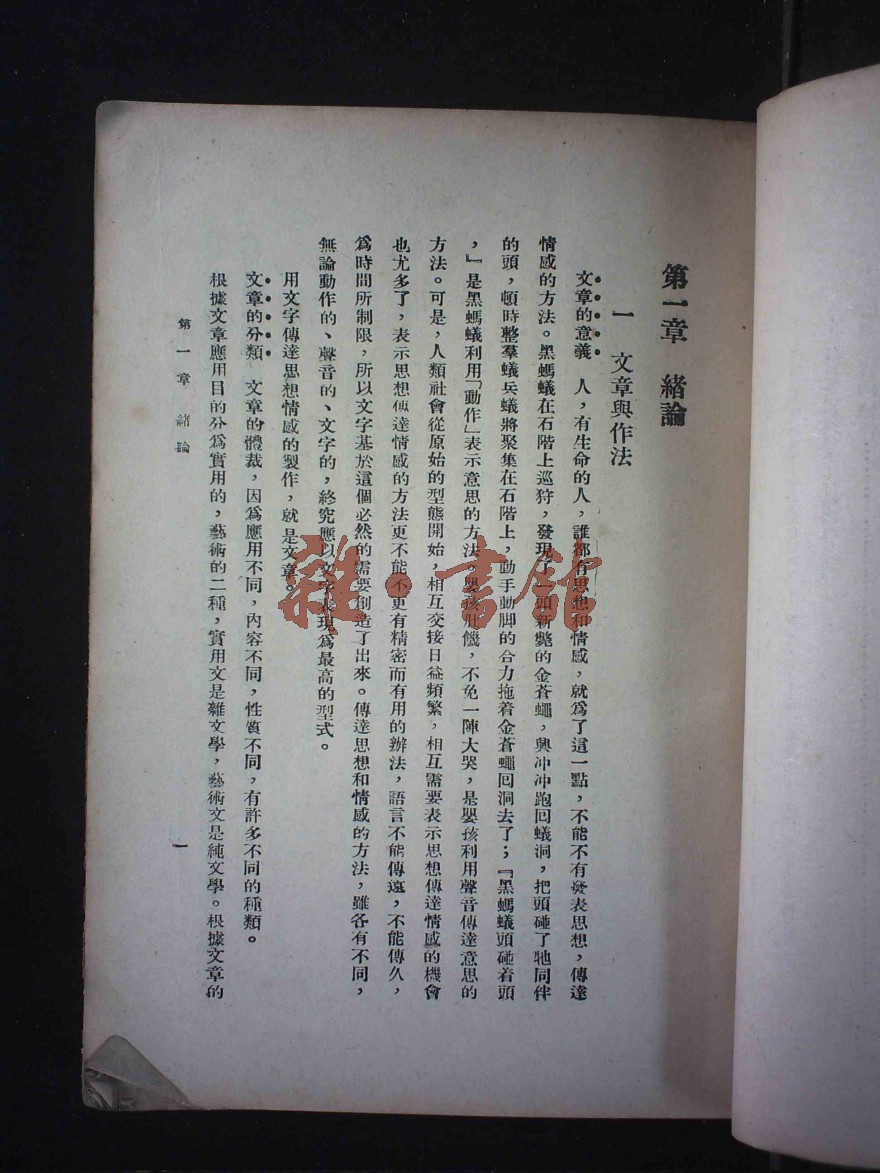 第一章 緒論
一 文章與作法
文章的意義 人，有生命的人，誰都有思想和情感，就爲了這一點，不能不有發表思想，傳達
情感的方法。黑螞蟻在石階上巡狩，發現了一頭新斃的金蒼蠅，興冲冲跑回蟻洞，把頭碰了牠同伴
的頭，頓時整羣蟻兵蟻將聚集在石階上，動手動脚的合力拖着金蒼蠅回洞去了；『黑螞蟻頭碰着頭
，』是黑螞蟻利用「動作」表示意思的方法。嬰孩肚饑，不免一陣大哭，是嬰孩利用聲音傳達意思的
方法。可是，人類社會從原始的型態開始，相互交接日益頻繁，相互需要表示思想傳達情感的機會
也尤多了，表示思想傳達情感的方法更不能不更有精密而有用的辦法，語言不能傳遠，不能傳久，
爲時間所制限，所以文字基於這個必然的需要創造了出來。傳達思想和情感的方法，雖各有不同，
無論動作的、聲音的、文字的，終究應以文字表現爲最高的型式。
用文字傳達思想情感的製作，就是文章。
文章的分類 文章的體裁，因爲應用不同，內容不同，性質不同，有許多不同的種類。
根據文章應用目的分爲實用的，藝術的二種，實用文是雜文學，藝術文是純文學。根據文章的
第一章 緒論
一
雜·書館